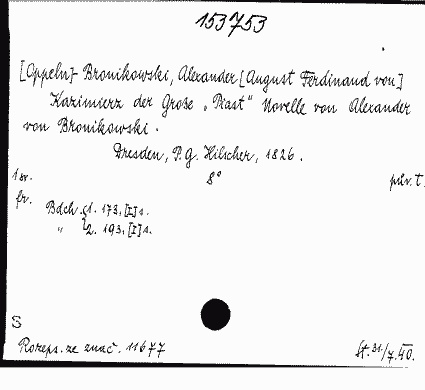 153753
[Oppeln]- Bronikowski, Alexander [August Ferdinand von]
Kazimierz der Große „Piast“ Novelle von Alexander
von Bronikowski.
Dresden, P. G. Hilscher, 1826.
1 sv. 8° pův. t.
fr.
Bdch. 1. 173, [I] s.
„ 2. 193, [I] s.
S
Rozeps. ze znač. 11677
St. 31/7.40.